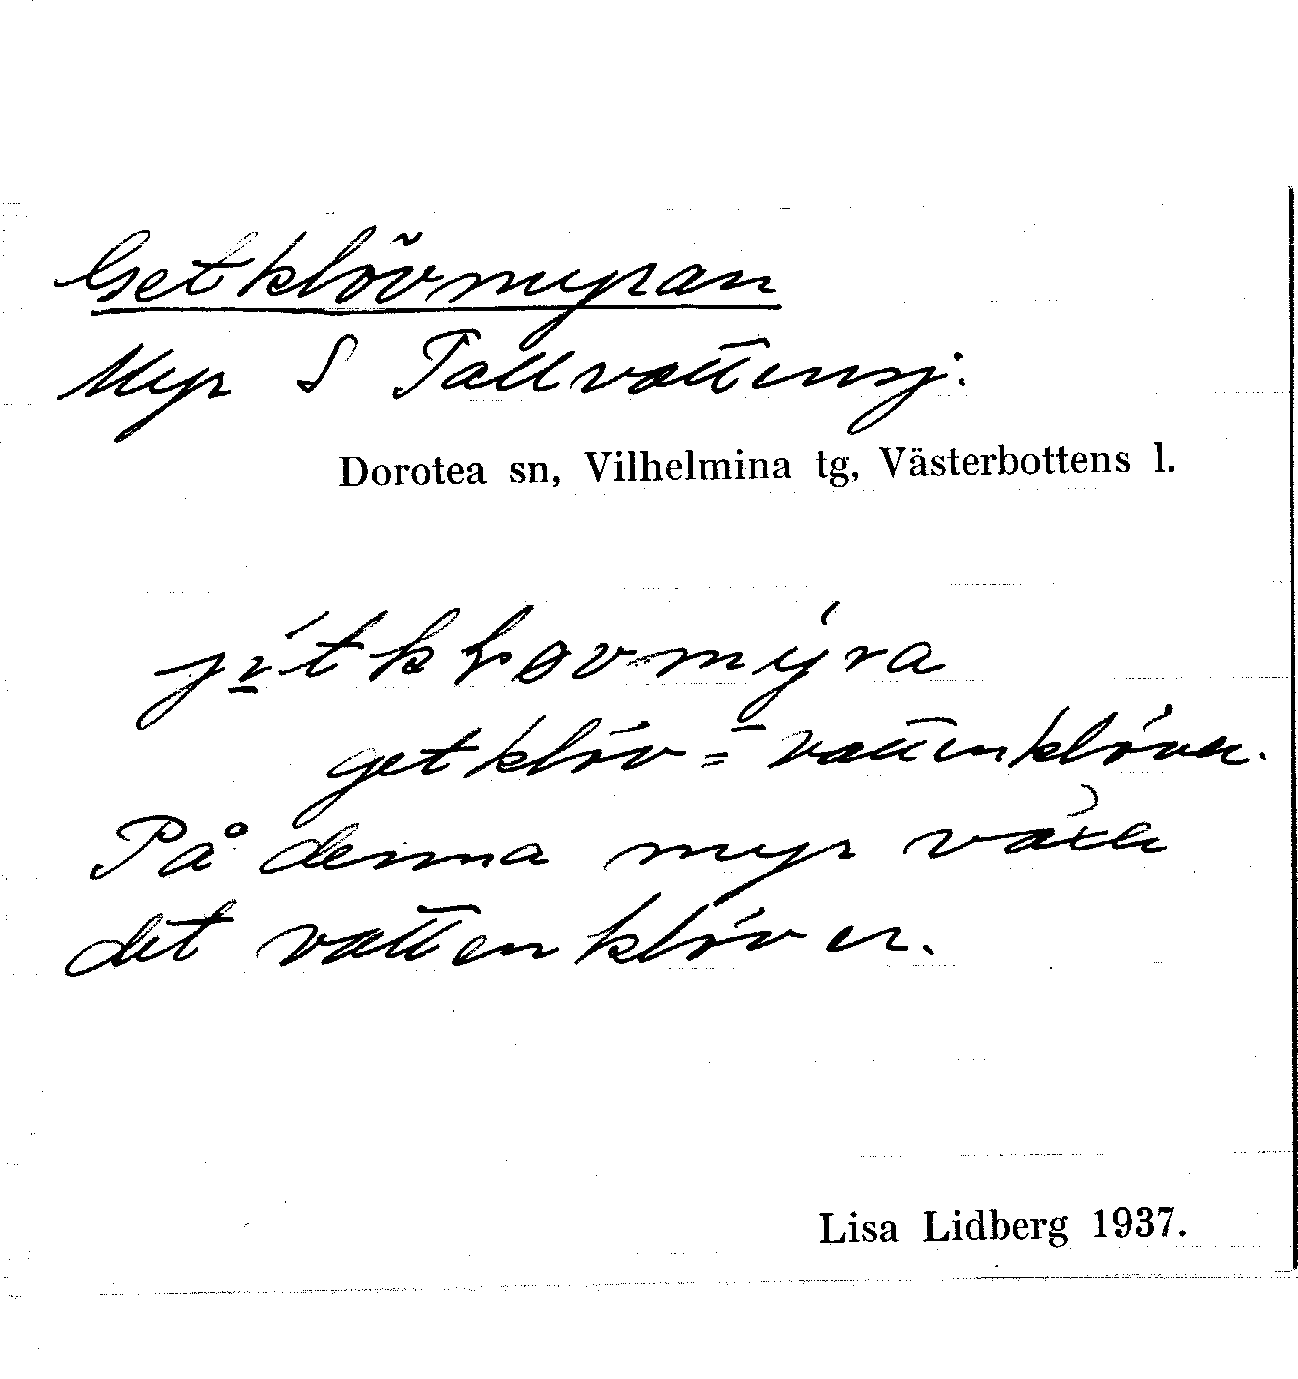 Getklövmyran
Myr S Tallvattensj.
Dorotea sn, Vilhelmina tg, Västerbottens l.
getklöv = vattenklöver.
På denna myr växer
det vattenklöver.
Lisa Lidberg 1937.